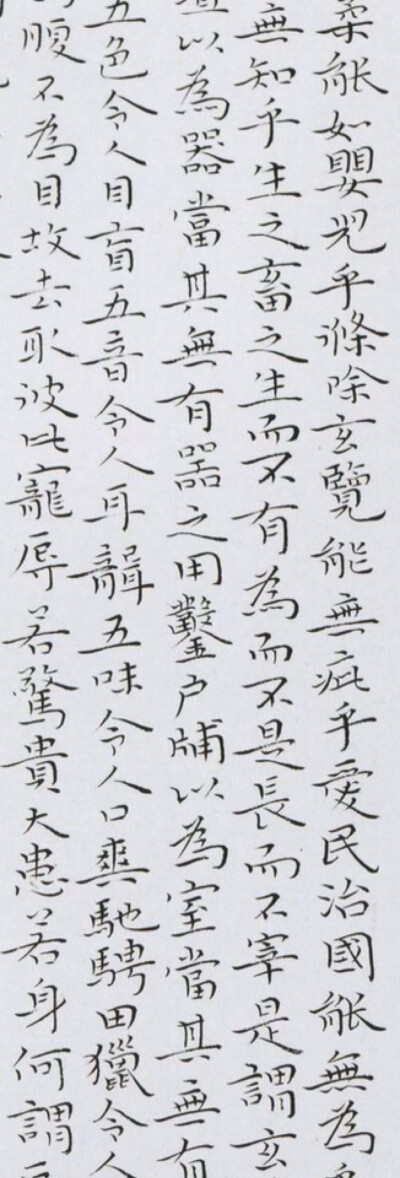 柔能如嬰兒乎滌除玄覽能無疵乎愛民治國能無為
無知乎生之畜之生而不有為而不是長而不宰是謂玄
以為器當其無有器之用鑿户牖以為室當其無有
五色令人目盲五音令人耳聾五味令人口爽馳騁田獵令人
腹不為目故去取彼此寵辱若驚貴大患若身何謂